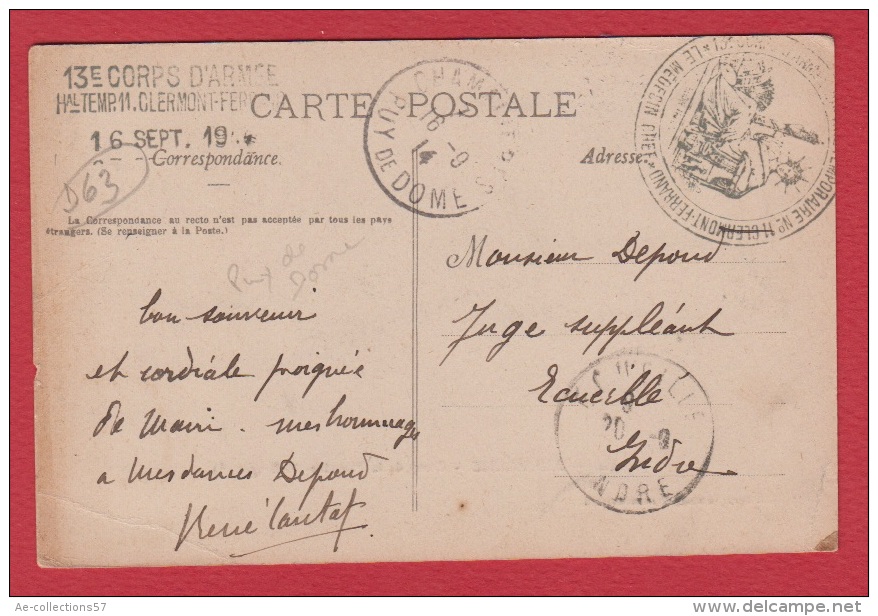 13E CORPS D'ARMEE
HAL TEMP. 11. CLERMONT-FERRAND
16 SEPT. 19
CARTE POSTALE
Correspondance.
Adresse
D63
La Correspondance au recto n'est pas acceptée par tous les pays
étrangers. (Se renseigner à la Poste.)
PUY DE DOME
16 -9
14
LE MEDECIN CHEF
TEMPORAIRE No 11 CLERMONT-FERRAND
Puy de
Dome
Monsieur Depond
Juge suppléant
Ecueillé
Indre
20 -9
INDRE
bon souvenir
et cordiale poignée
de main. mes hommages
a Mesdames Depond
René
Ae-collections57
delcampe.net